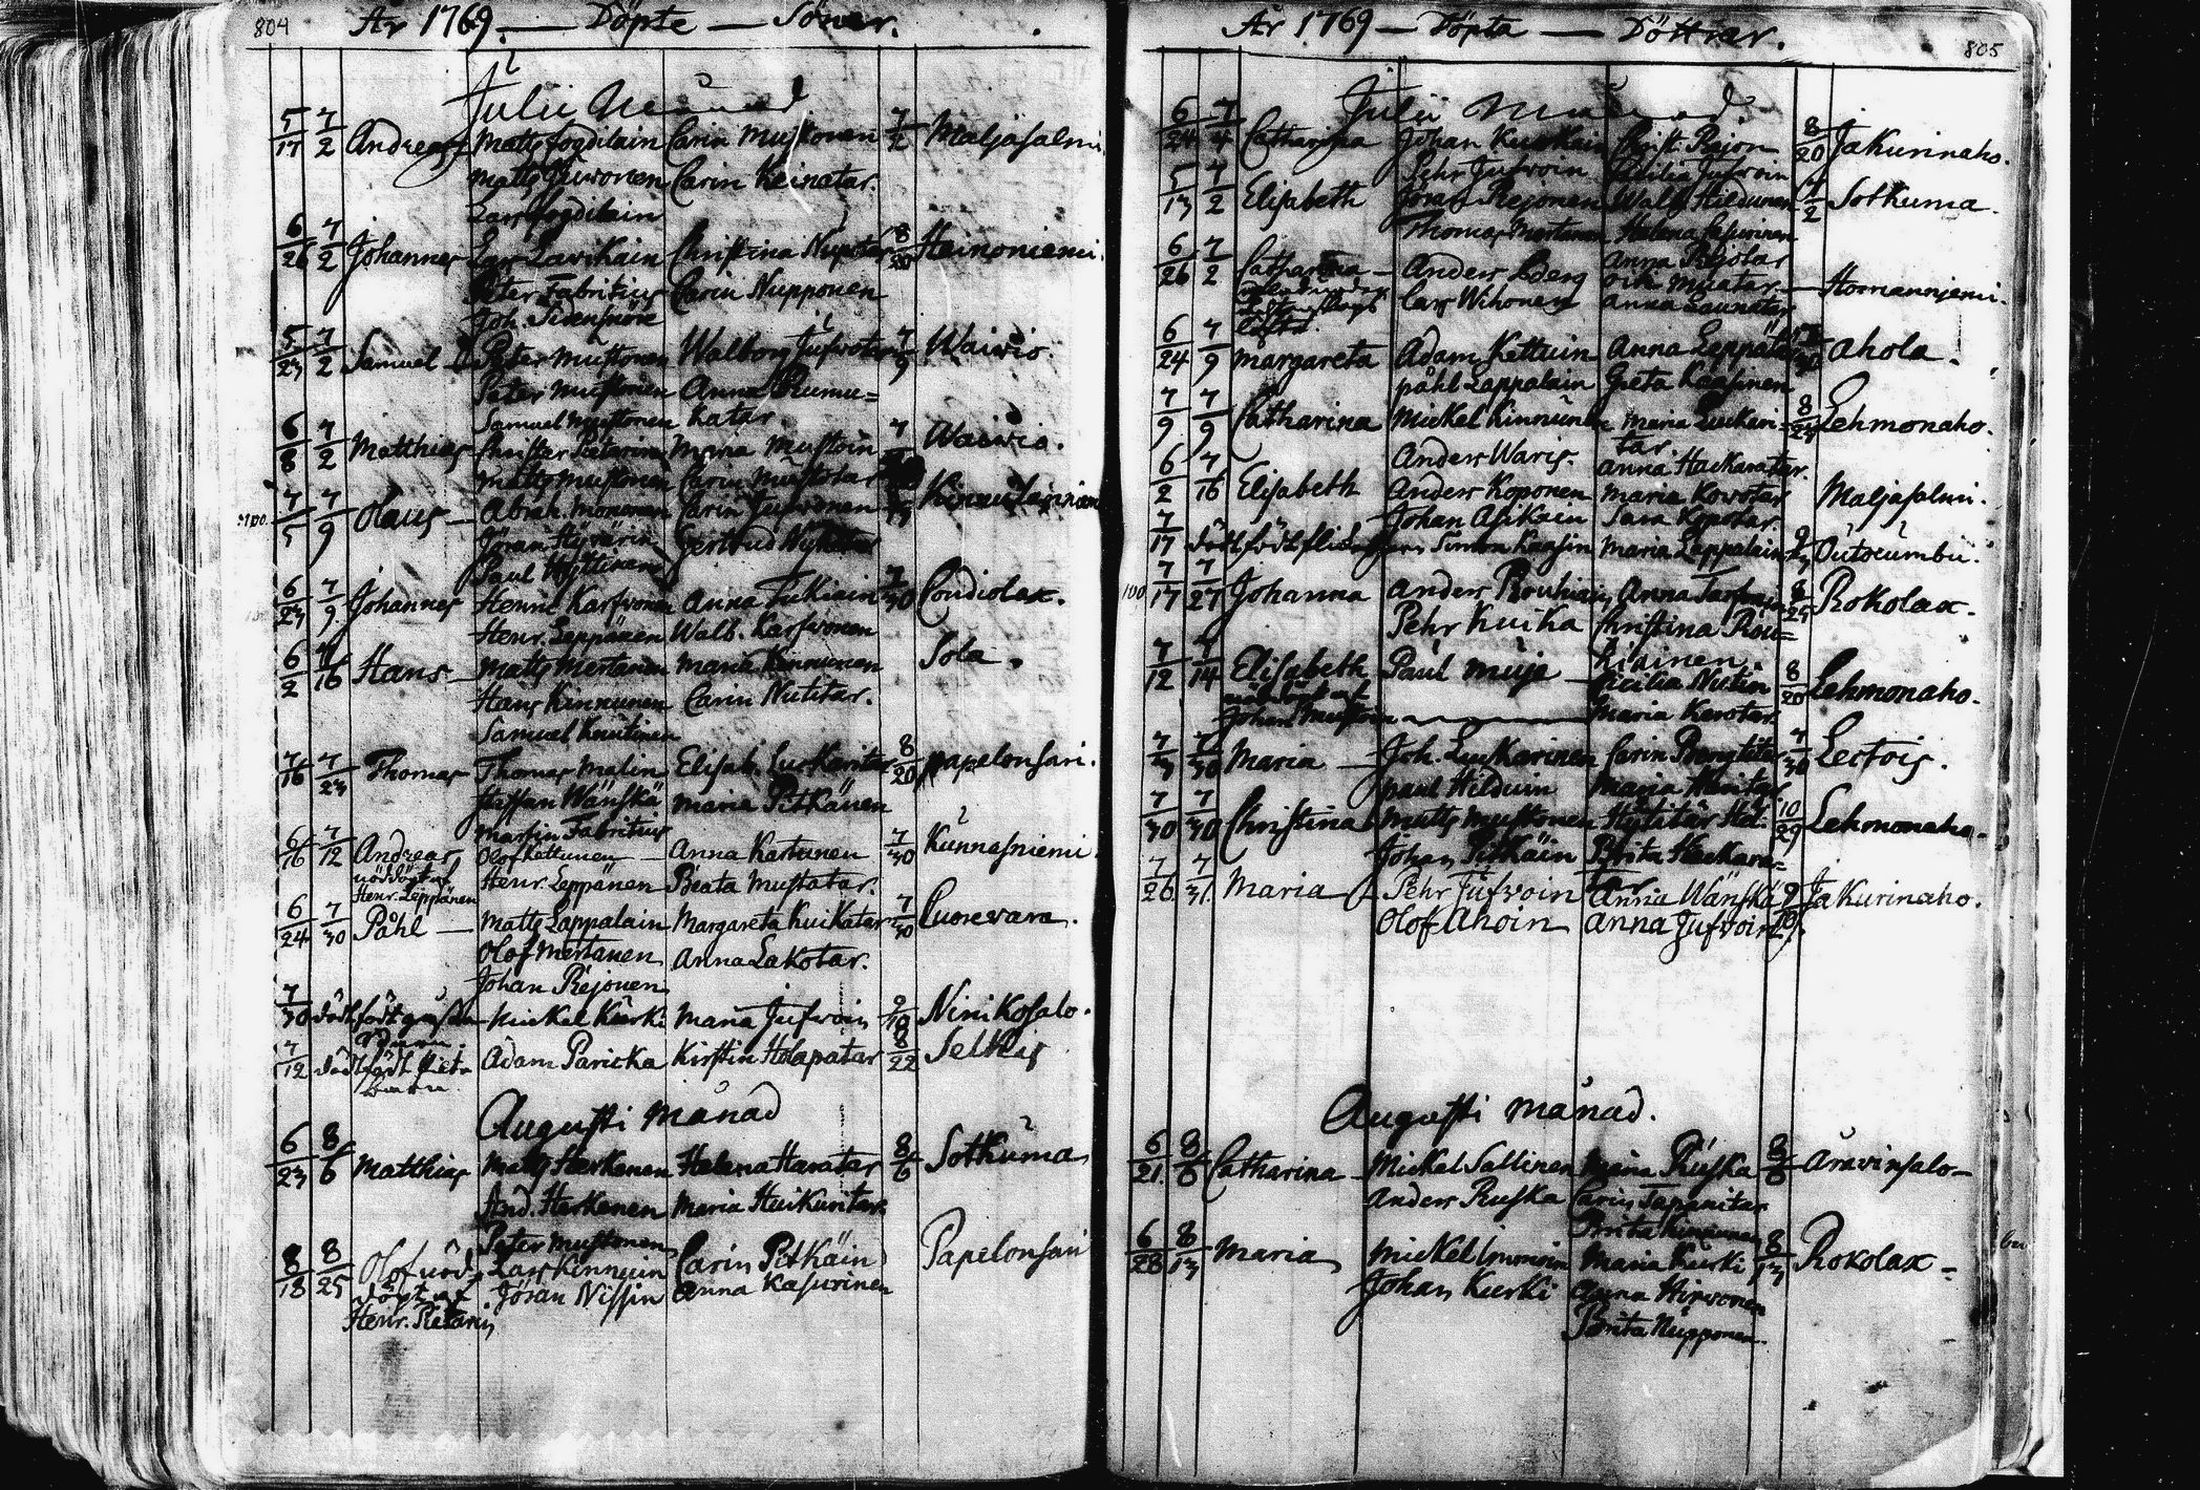 804
År 1769. — Döpte — Söner.
Julii Månad
5/17 7/2 Andreas Matts Fogdilain Carin Mustonen 7/2 Maljasalmi
Matts Juvonen Carin Keinatar.
Lars Fogdilain
6/26 7/2 Johannes Lars Lavikain Christina Nupotar 8/20 Heinoniemi.
Peter Fabritius Carin Nupponen
Joh.
5/23 7/2 Samuel Peter Mustonen Walborg Jufvotar 7/9 Waivio.
Peter Mustonen Anna
Samuel Mustonen katar
6/8 7/2 Matthias Christer Pietarinen Maria Mustoin 7 Waivio.
Matts Mustonen Carin Mustotar
7/5 7/9 Olaus — Abrah. Mononen Carin Jufvonen
Jöran Hyvärin Gertrud
Paul Hyttinen
6/23 7/9 Johannes Henric Karfvonen Anna Tukiain 7/30 Condiolax.
Henr. Leppänen Walb. Karfvonen
6/2 7/16 Hans — Matts Mertanen Maria Kinnunen Sola.
Hans Kinnunen Carin Nutitar.
Samuel Knutinen
7/16 7/23 Thomas Thomas Malin Elisab. Luckaritar 8/20 papelonsari.
Staffan Wänskä Maria Pitkänen
Martin Fabritius
6/16 7/12 Andreas Olof Kettunen — Anna Kartunen 7/30 Kunnasniemi
nöddöpt af Henr. Leppänen Beata Mustatar.
Henr. Leppänen
6/24 7/30 Påhl — Matts Lappalain Margareta Kuikatar 7/30 Puosovara.
Olof Mertanen Anna Lakotar.
Johan Rejonen
7/30 dödfödt Mickel Kurki Maria Jufvoin 9/10 Ninikosalo.
7/12 dödfödt Adam Paricka Kirstin Holapatar 8/22 Selkis
barn.
Augusti Månad
6/23 8/6 Matthias Matts Herkenen Helena Havatar 8/6 Sotkuma
And. Herkenen Maria Huikuritar
Peter Mustonen
8/18 8/25 Olof nöd Lars Kinnuin Carin Pitkäin Papelonsari
döpt af Jöran Nissin Anna Kasurinen
Henr. Pietarin
År 1769 — Döpta — Döttrar.
805
Julii Månad.
6/24 7/4 Catharina Johan Kuokain Christ. Rejon 8/20 Jakurinaho.
Pehr Jufvoin Cecilia Jufvoin
5/13 7/2 Elisabeth Jöran Rejonen Walb. Hildunen 7/2 Sotkuma.
Thomas Mertanen Helena Kasurinen
Anna Rejotar
6/26 7/2 Catharina — Anders Sberg Homanniemi.
Lars Wihonen Anna Launatar
6/24 7/9 Margareta Adam Kettuin Anna Leppätar Ahola.
påhl Lappalain Greta Kaasinen
7/9 7/9 Catharina Mickel Kinnunen Maria Luckari- 8/27 Lehmonaho.
tar
Anders Waris. Anna Hackaratar.
6/2 7/16 Elisabeth Anders Koponen Maria Kovotar Maljasalmi.
Johan Asikain Sara Kopotar.
7/17 dödfödt Simon Kaasin Maria Lappalain Outocumbu.
7/17 7/27 Johanna Anders Rouhiain Anna 8/25 Rokolax.
Pehr Kuika Christina Rou=
hiainen.
7/12 7/14 Elisabeth Paul Muje — Cicilia Nutin 8/20 Lehmonaho.
nöddöpt af
Johan Mustoin Maria Kerotar
7/3 7/30 Maria — Joh. Luckarinen Carin 7/30 Lectois.
paul Hilduin Maria
7/30 7/30 Christina Matts Mustonen 10/29 Lehmonaho.
Johan Pitkäin Brita Hackara=
tar
7/26 7/31. Maria Pehr Jufvoin Anna Wänskä Jakurinaho.
Olof Ahoin Anna Jufvoin
Augusti Månad.
6/21. 8/6 Catharina — Mickel Sallinen Maria Ruska 8/6 Aravinsalo —
Anders Ruska Carin Tapanitar
Brita Kinnunen
6/28 8/13 Maria Mickel Immoin Maria Kurki 8/13 Rokolax —
Johan Kurki Anna Hirvonen
Brita Nupponen.